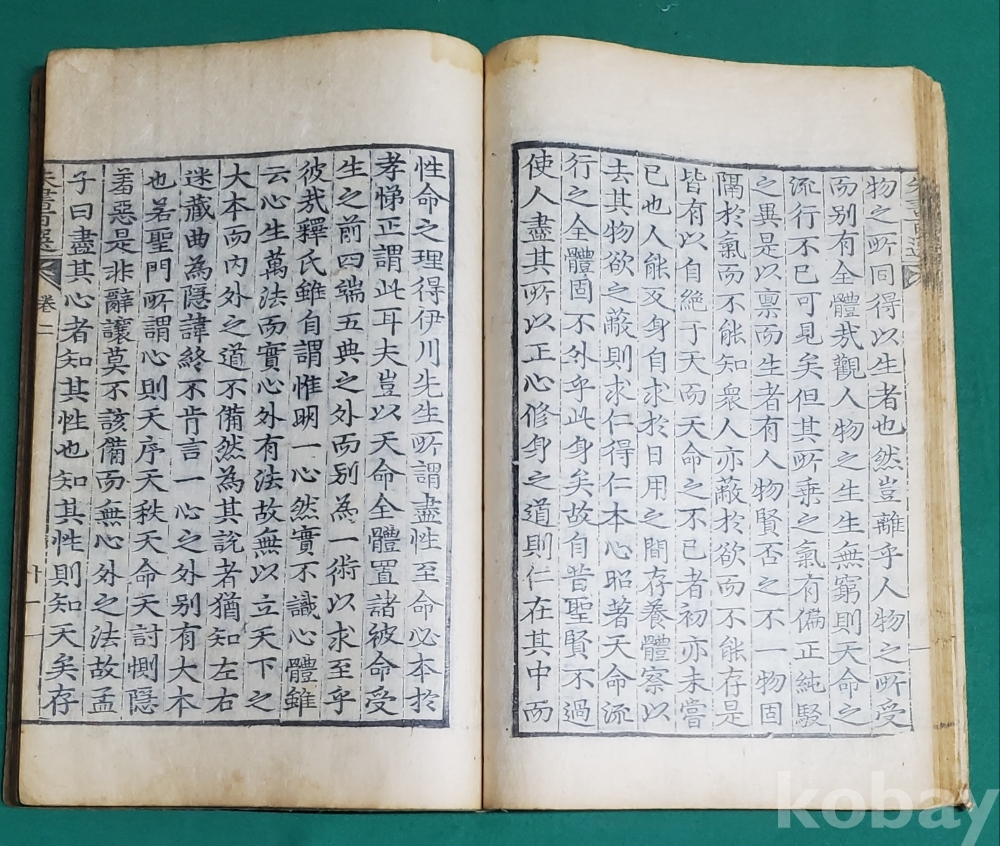 物之所同得以生者也然豈離乎人物之所受
而别有全體哉觀人物之生生無窮則天命之
流行不已可見矣但其所乘之氣有偏正純駁
之異是以禀而生者有人物賢否之不一物固
隔於氣而不能知衆人亦蔽於欲而不能存是
皆有以自絶于天而天命之不已者初亦未嘗
已也人能反身自求於日用之間存養體察以
去其物欲之蔽則求仁得仁本心昭著天命流
行之全體固不外乎此身矣故自昔聖賢不過
使人盡其所以正心修身之道則仁在其中而
性命之理得伊川先生所謂盡性至命必本於
孝悌正謂此耳夫豈以天命全體置諸彼命受
生之前四端五典之外而别為一術以求至乎
彼哉釋氏雖自謂惟明一心然實不識心體雖
云心生萬法而實心外有法故無以立天下之
大本而內外之道不備然為其說者猶知左右
迷藏曲為隱諱終不肯言一心之外别有大本
也若聖門所謂心則天序天秩天命天討惻隱
羞惡是非辭讓莫不該備而無心外之法故孟
子曰盡其心者知其性也知其性則知天矣存
朱書百選
卷二
十一
kobay